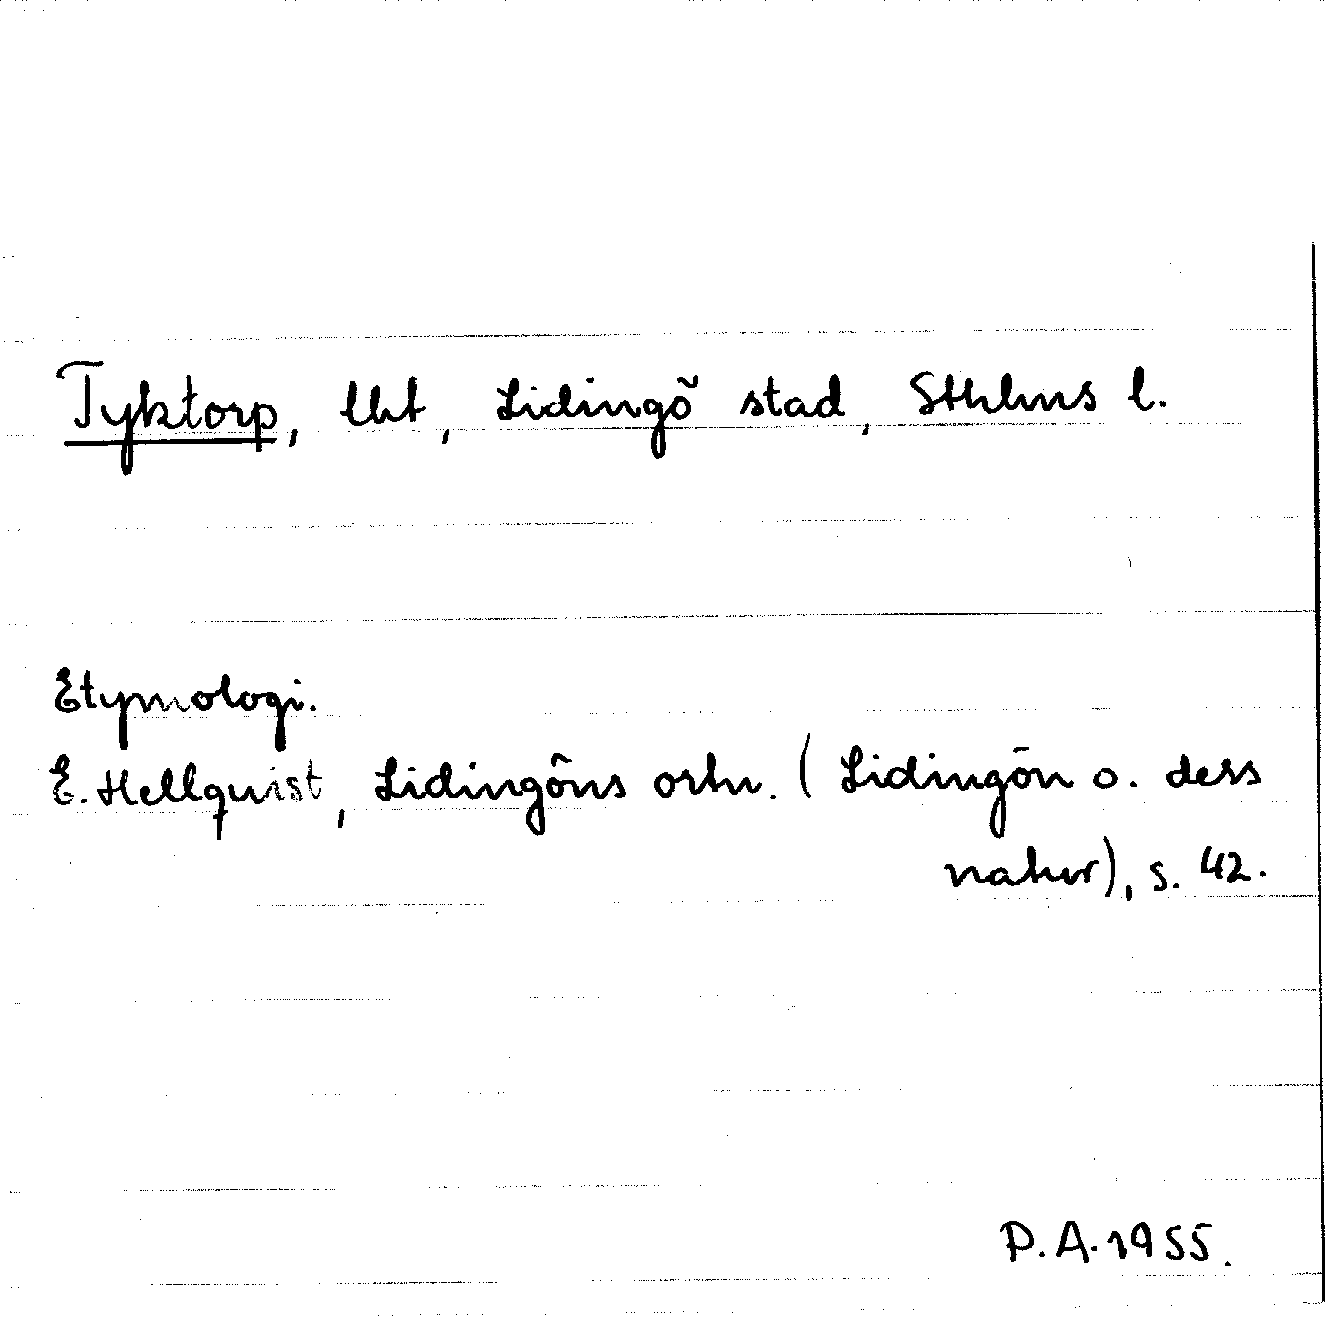 Tyktorp, lht, Lidingö stad, Sthlms l.
Etymologi.
E. Hellquist, Lidingöns ortn. (Lidingön o. dess
natur), s. 42.
P.A. 1955.